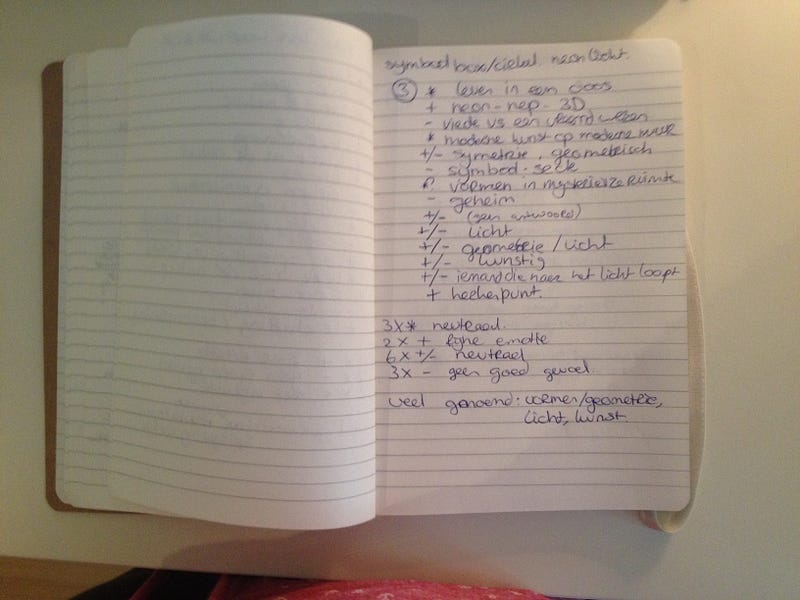 symbool box/cirkel neon licht.
③ * leven in een doos.
+ neon-nep-3D
- vrede vs een wezen
* moderne kunst op moderne muur
+/- symetrie, geometrisch
- symbool: sekte
* vormen in mysterieuze ruimte
- geheim
+/- (geen antwoord)
+/- licht
+/- geometrie / licht
+/- kunstig
+/- iemand die naar het licht loopt
+ herkenpunt.
3x * neutraal.
2x + fijne emotie
6x +/- neutraal
3x - geen goed gevoel.
veel genoemd: vormen/geometrie,
licht, kunst.